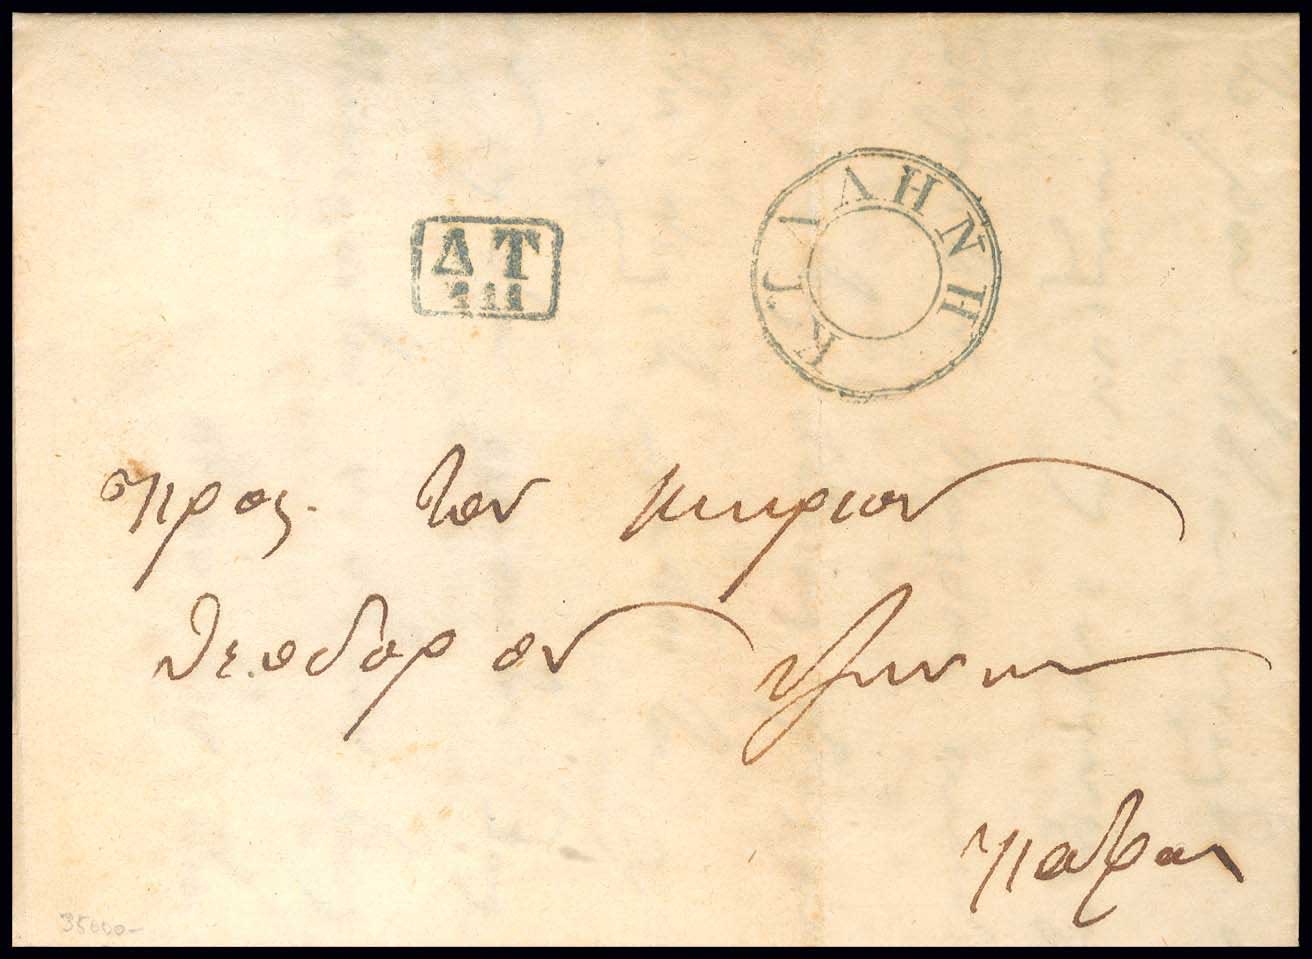 ΔΤ
111
ΚΥΛΛΗΝΗ
προς τον κυριον
θεοδορον
πατρας
35000-